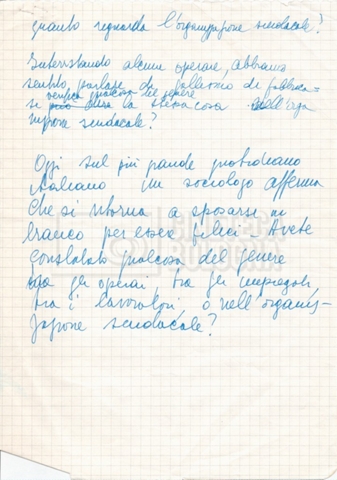 quanto riguarda l'organizzazione sindacale?
Intervistando alcune operaie, abbiamo
sentito parlare di di fabbrica.
verifica qualcosa del genere
si può dire la stessa cosa dell'orga
nizzazione sindacale?
Oggi sul più grande quotidiano
italiano un sociologo afferma
che si ritorna a sposarsi in
bianco per esser felici. Avete
constatato qualcosa del genere
tra gli operai, tra gli impiegati,
tra i lavoratori, o nell'organiz-
zazione sindacale?